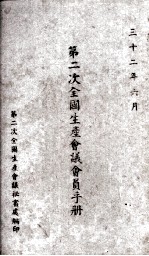 三十二年六月
第二次全國生產會議會員手册
第二次全國生產會議秘書處編印